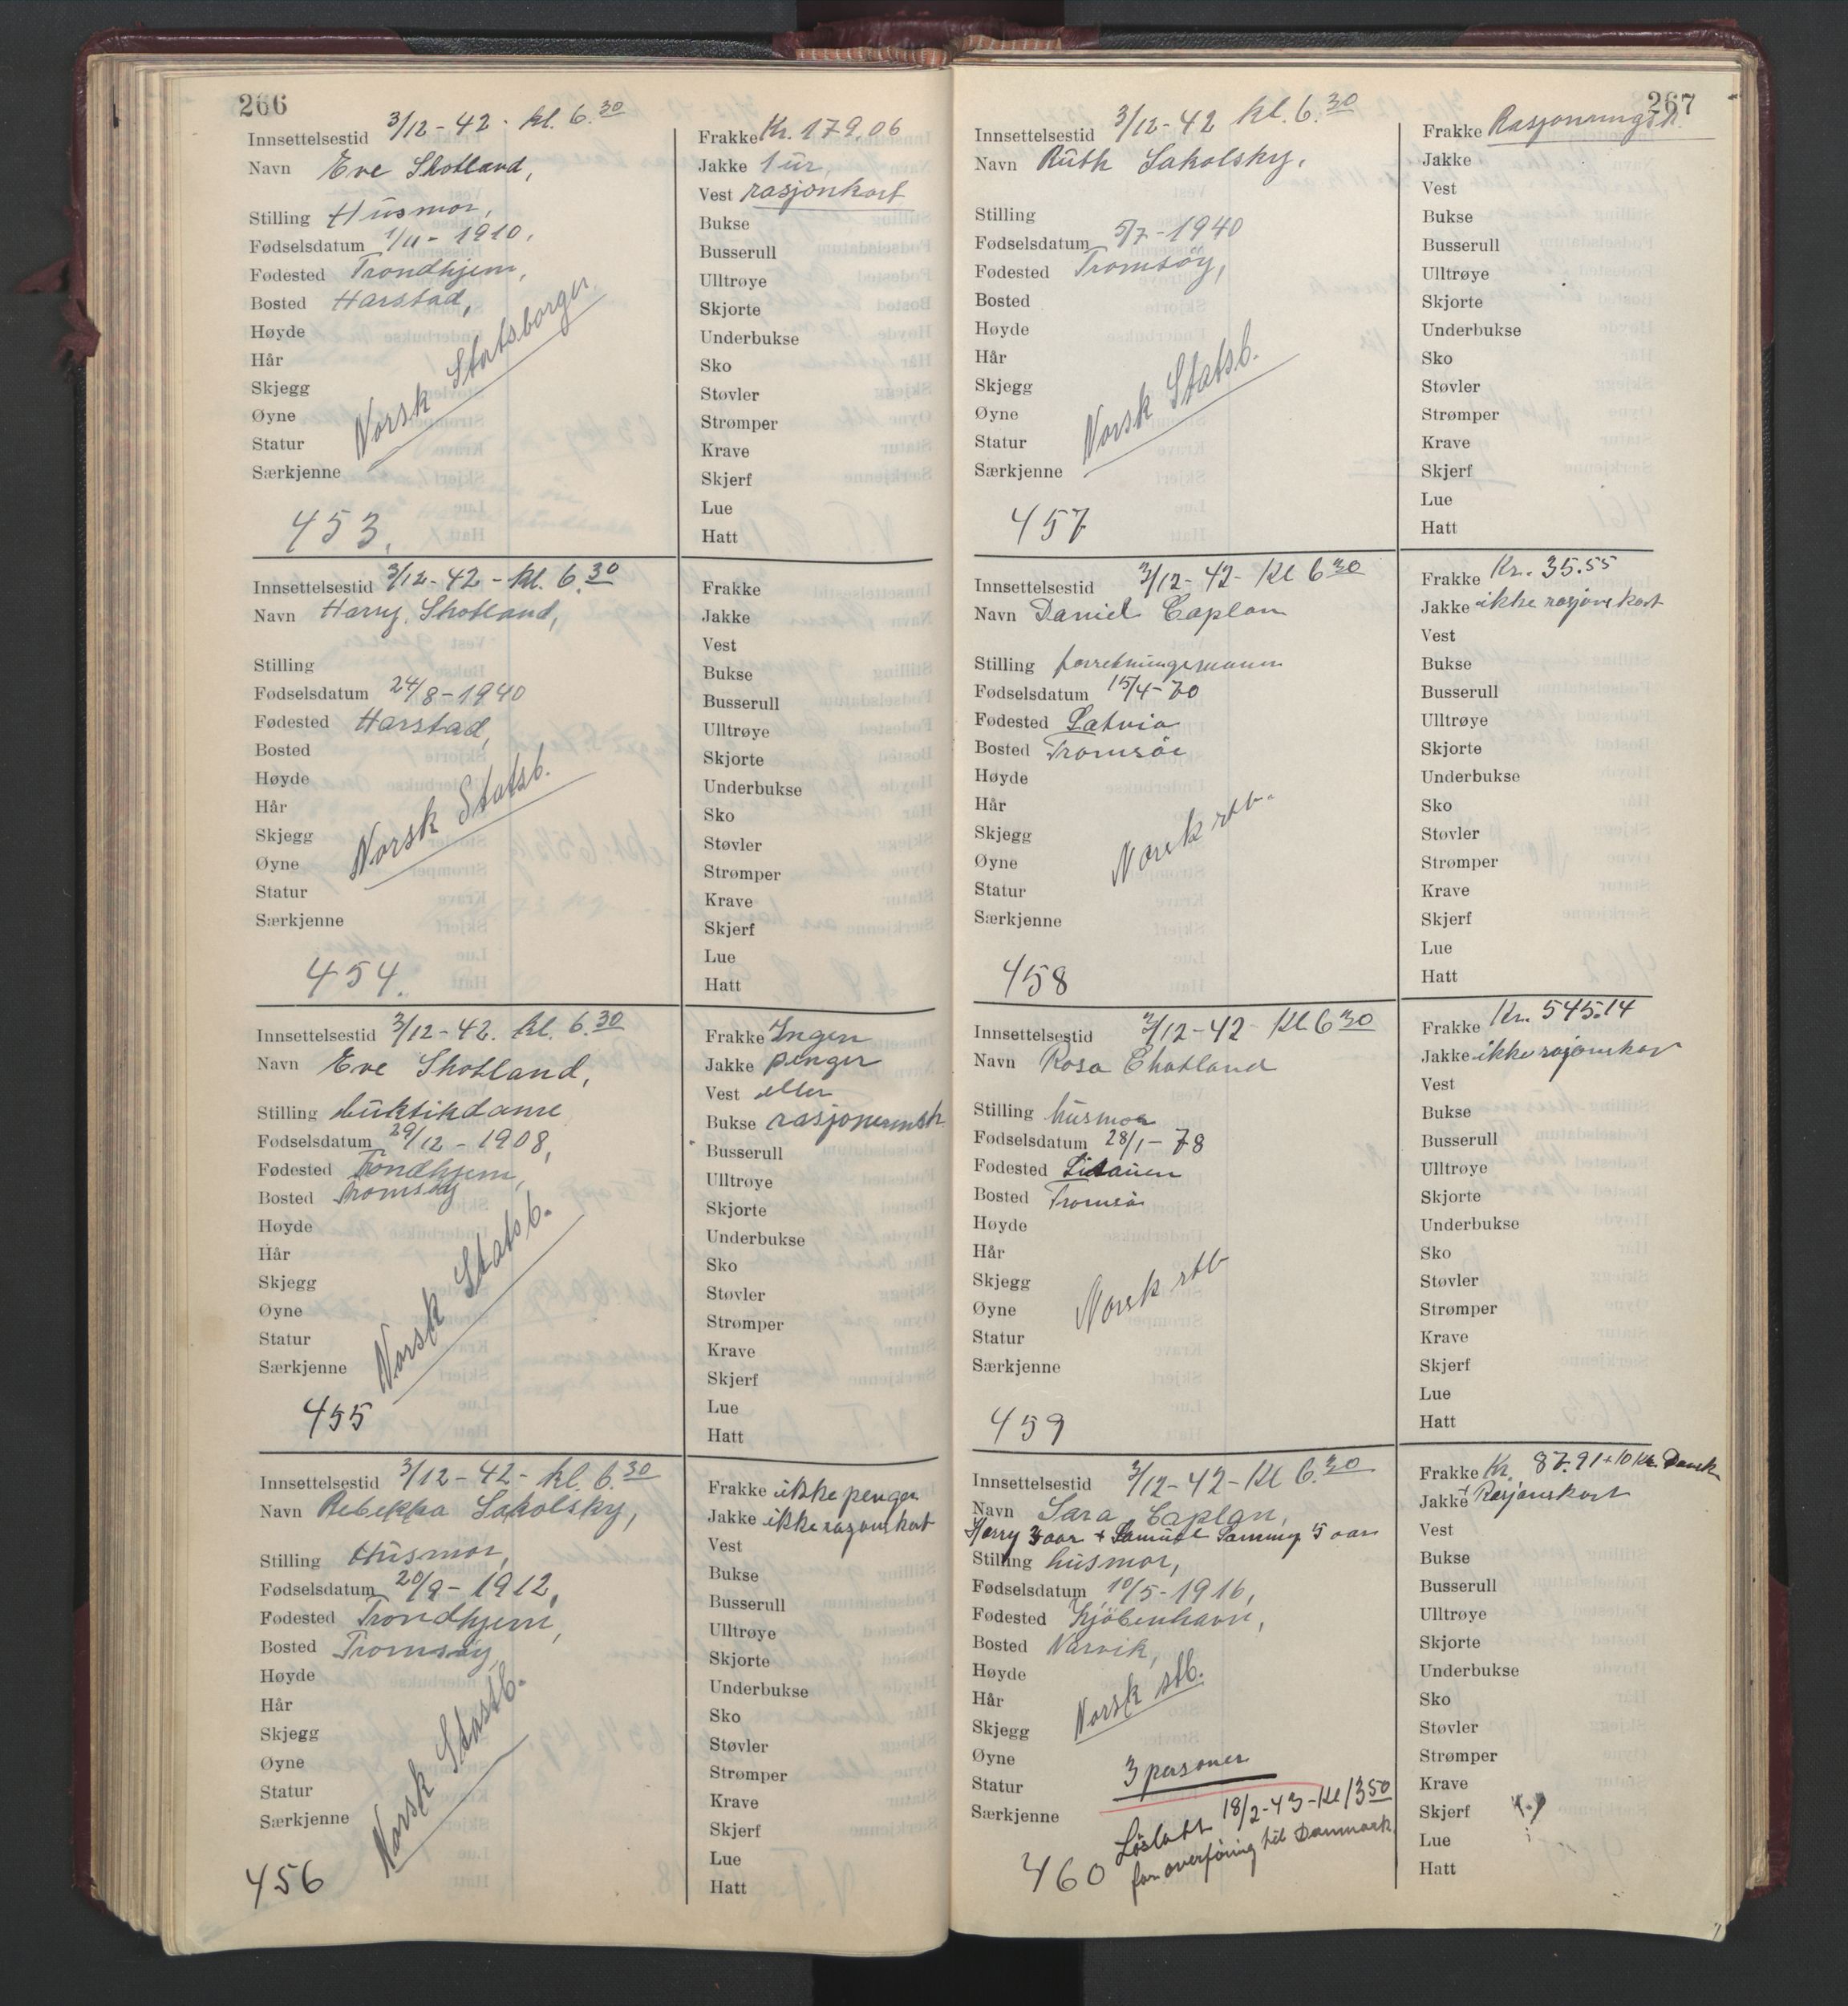 266
Innsettelsestid 3/12-42 - kl. 6.30
Navn Eve Shotland,
Stilling Husmor,
Fødselsdatum 1/11 - 1910,
Fødested Trondhjem,
Bosted Harstad,
Høyde
Hår
Skjegg
Øyne
Statur
Særkjenne
Norsk Statsborger
453.
Frakke Kr. 179.06
Jakke 1 ur,
Vest rasjonkort
Bukse
Busserull
Ulltrøye
Skjorte
Underbukse
Sko
Støvler
Strømper
Krave
Skjerf
Lue
Hatt
Innsettelsestid 3/12-42 - kl. 6.30
Navn Harry Shotland,
Stilling
Fødselsdatum 24/8-1940
Fødested Harstad,
Bosted
Høyde
Hår
Skjegg
Øyne
Statur
Særkjenne
Norsk Statsb.
454.
Frakke
Jakke
Vest
Bukse
Busserull
Ulltrøye
Skjorte
Underbukse
Sko
Støvler
Strømper
Krave
Skjerf
Lue
Hatt
Innsettelsestid 3/12-42. kl. 6.30
Navn Eve Shotland,
Stilling buktikdame
Fødselsdatum 29/12 - 1908,
Fødested Trondhjem,
Bosted Tromsøy
Høyde
Hår
Skjegg
Øyne
Statur
Særkjenne
Norsk Statsb.
455
Frakke Ingen
Jakke penger
Vest eller
Bukse rasjonermsk
Busserull
Ulltrøye
Skjorte
Underbukse
Sko
Støvler
Strømper
Krave
Skjerf
Lue
Hatt
Innsettelsestid 3/12-42- kl. 6.30
Navn Rebekka Sakolsky,
Stilling Husmor,
Fødselsdatum 20/9 - 1912,
Fødested Trondhjem,
Bosted Tromsøy,
Høyde
Hår
Skjegg
Øyne
Statur
Særkjenne
Norsk Stastb.
456
Frakke ikke penger
Jakke ikke rasjonskort
Vest
Bukse
Busserull
Ulltrøye
Skjorte
Underbukse
Sko
Støvler
Strømper
Krave
Skjerf
Lue
Hatt
267
Innsettelsestid 3/12-42 kl. 6.30
Navn Ruth Sakolsky,
Stilling
Fødselsdatum 5/7-1940
Fødested Tromsöy,
Bosted
Høyde
Hår
Skjegg
Øyne
Statur
Særkjenne
Norsk Statsb.
457
Frakke Rasjonningsk.
Jakke
Vest
Bukse
Busserull
Ulltrøye
Skjorte
Underbukse
Sko
Støvler
Strømper
Krave
Skjerf
Lue
Hatt
Innsettelsestid 3/12-42- Kl 6 30
Navn Daniel Caplan
Stilling forretningsmann
Fødselsdatum 15/4-70
Fødested Latvia
Bosted Tromsöe
Høyde
Hår
Skjegg
Øyne
Statur
Særkjenne
Norsk stb.
458
Frakke Kr. 35.55
Jakke ikke rasjonskort
Vest
Bukse
Busserull
Ulltrøye
Skjorte
Underbukse
Sko
Støvler
Strømper
Krave
Skjerf
Lue
Hatt
Innsettelsestid 3/12-42 Kl 6 30
Navn Rosa Chatland
Stilling husmor
Fødselsdatum 28/1-78
Fødested Litauen
Bosted Tromsö
Høyde
Hår
Skjegg
Øyne
Statur
Særkjenne
Norsk stb
459
Frakke Kr. 545.14
Jakke ikke rasjonskor
Vest
Bukse
Busserull
Ulltrøye
Skjorte
Underbukse
Sko
Støvler
Strømper
Krave
Skjerf
Lue
Hatt
Innsettelsestid 3/12-42-Kl 6.30
Navn Sara Caplan,
Harry 3 aar + Samuel Sammy 5 aar
Stilling husmor,
Fødselsdatum 10/5-1916,
Fødested Kjöbenhavn,
Bosted Narvik,
Høyde
Hår
Skjegg
Øyne
Statur
Særkjenne
Norsk stb.
3 personer
Löslatt 18/2-43-Kl 13 50
for overföring til Danmark
460
Frakke Kr. 87.91+10 Kr. Dansk
Jakke + Rasjonskort
Vest
Bukse
Busserull
Ulltrøye
Skjorte
Underbukse
Sko
Støvler
Strømper
Krave
Skjerf
Lue
Hatt